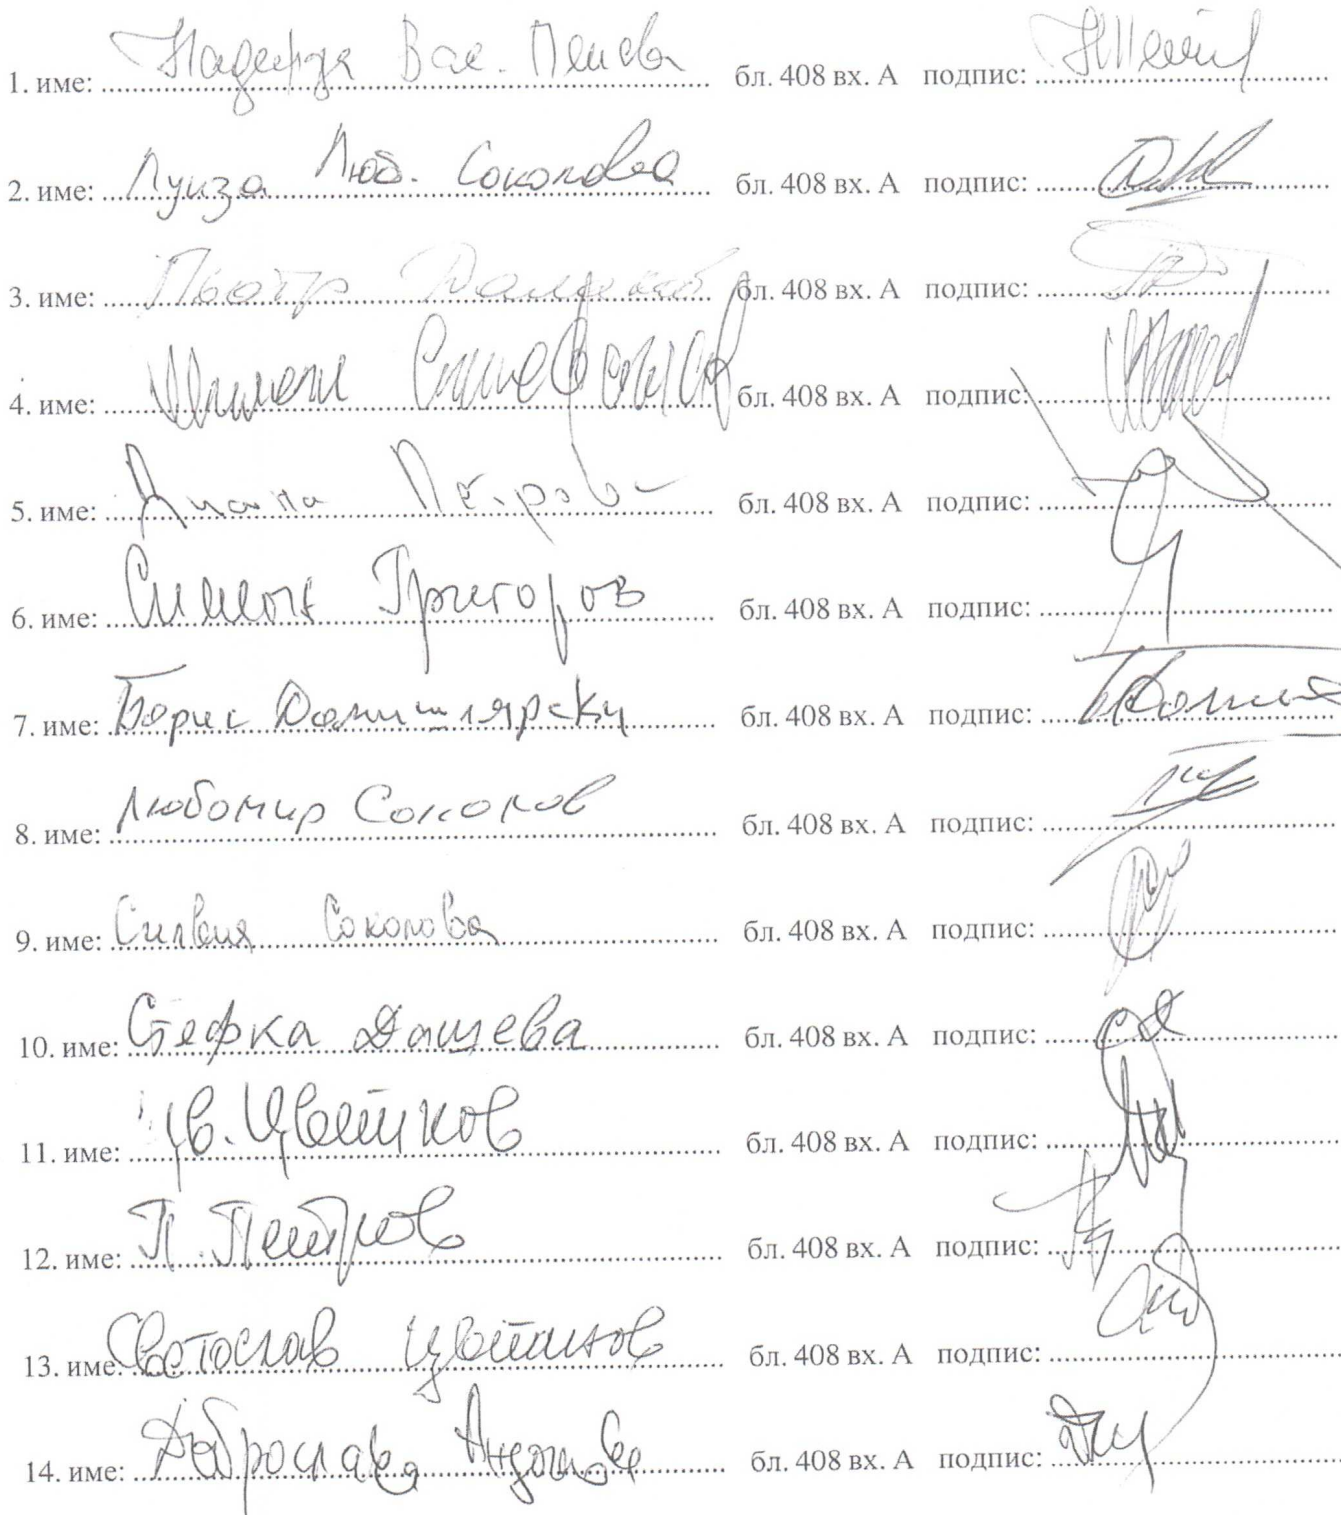 1. име: Надежда Вас. Пенева бл. 408 вх. А подпис:
2. име: Луиза Люб. Соколова бл. 408 вх. А подпис:
3. име: бл. 408 вх. А подпис:
4. име: бл. 408 вх. А подпис:
5. име: Диана Петрова бл. 408 вх. А подпис:
6. име: Симеон Григоров бл. 408 вх. А подпис:
7. име: Борис Домишлярски бл. 408 вх. А подпис:
8. име: Любомир Соколов бл. 408 вх. А подпис:
9. име: Силвия Соколова бл. 408 вх. А подпис:
10. име: Стефка Дашева бл. 408 вх. А подпис:
11. име: Цв. Цветков бл. 408 вх. А подпис:
12. име: П. Петров бл. 408 вх. А подпис:
13. име: Светослав бл. 408 вх. А подпис:
14. име: Доброслава бл. 408 вх. А подпис: